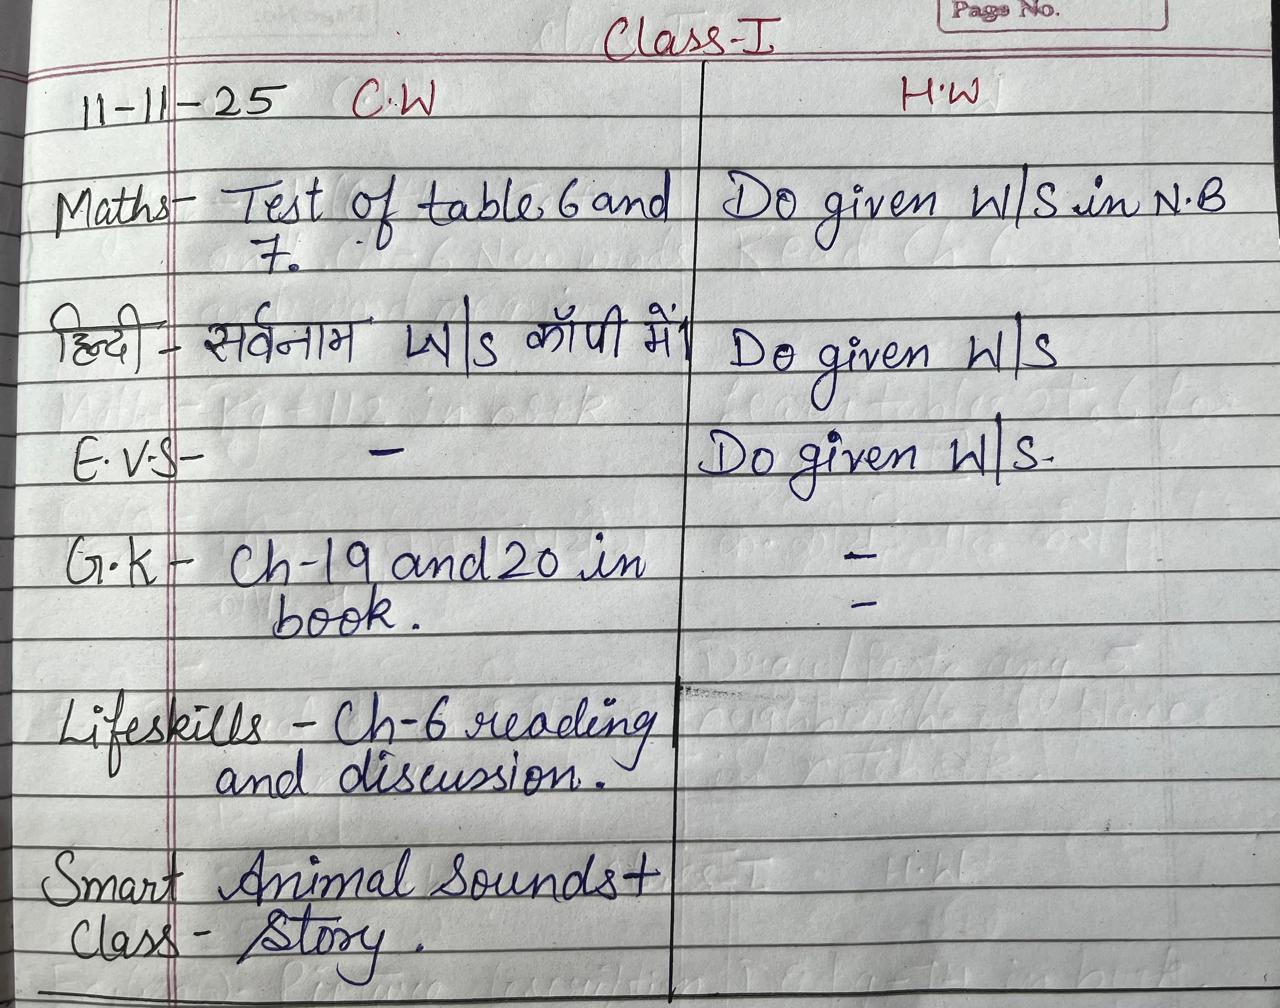 Page No.
Class-I
11-11-25 C.W H.W
Maths- Test of table 6 and Do given W/S in N.B
7.
हिन्दी - सर्वनाम W/S कॉपी में। Do given W/S
E.V.S- - Do given W/S.
G.K- Ch-19 and 20 in -
book. -
Lifeskills - Ch-6 reading
and discussion.
Smart Animal Sounds +
Class- Story.